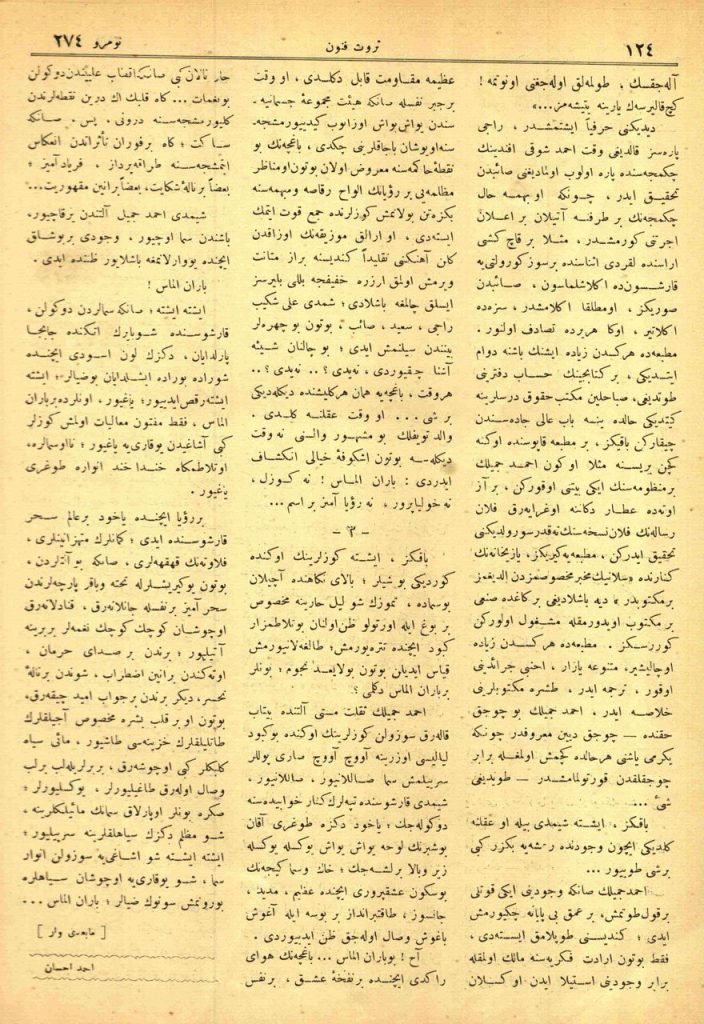 ١٢٤
ثروت فنون
نومرو ٢٧٤
آله‌جقسك ، طولمه‌لق اوله‌جغنی اونوتمه !
كچ قالیرسه‌ك یارینه یتیشه‌مز...»
دیدیكنی حرفیاً ایشتمشدر ، راجی
پاره‌سز قالدیغی وقت احمد شوقی افندینك
چكمجه‌سنده پاره اولوب اولمادیغنی صائبدن
تحقیق ایدر ، چونكه او بهمه حال
چكمجه‌نك بر طرفنه آتیلان بر اعلان
اجرتنی كورمشدر ، مثلا بر قاچ كشی
اراسنده لقردی اثناسنده برسوز كورولتی‌یه
قارشسون‌ده اكلاشلماسون ، صائبدن
صوریكز ، اومطلقا اكلامشدر ، سزه‌ده
اكلاتیر ، اوكا هربرده تصادف اولنور .
مطبعه‌ده هركسدن زیاده ایشنك باشنه دوام
ایتدیكی ، بر كتابجینك حساب دفترینی
طوتدیغی، صباحلین مكتب حقوق درسلرینه
كیتدیكی حالده ینه باب عالی جاده‌سندن
چیقاركن باقیكز ، بر مطبعه قاپوسنده اوكنه
كچن بریسنه مثلا او كون احمد جمیلك
بر منظومه‌سنك ایكی بیتنی اوقوركن ، بر آز
اوته‌ده عطار دكاننه اوغرایه‌رق فلان
رساله‌نك فلان نسخه‌سنك نه‌قدر سورولدیكنی
تحقیق ایدركن ، مطبعه‌یه كیریكز، یازیخانه‌نك
كنارنده «سلانیك مخبر مخصوصمزدن الدیغمز
بر مكتوبدر» دیه باشلادیغی بر كاغده صنعی
بر مكتوب اویدورمقله مشغول اولوركن
كوررسكز . مطبعه‌ده هركسدن زیاده
اوچالیشیر، متنوعه یازار ، اجنبی جرائدینی
اوقور ، ترجمه ایدر ، طشره مكتوبلرینی
خلاصه ایدر ، احمد جمیلك بو چوجق
حقنده — چوجق دیین معروفدر چونكه
یكرمی یاشنی هرحالده كچمش اولمغله برابر
چوجقلقدن قورتولمامشدر — طویدیغی
شی ...
باقیكز ، ایشته شیمدی بیله او عقلنه
كلدیكی ایچون وجودنده رعشه‌یه بكزر كبی
برشی طوییور ...
احمد جمیلك صانكه وجودینی ایكی قوتلی
برقول طوتمش ، بر عمق بی پایانه چكیورمش
ایدی ؛ كندیسنی طوپلامق ایسته‌دی ،
فقط بوتون ارادت فكریه‌سنه مالك اولمقله
برابر وجودینی استیلا ایدن اوكسلان
عظیمه مقاومت قابل دكلدی ، او وقت
برجبر نفسله صانكه هیئت مجموعۀ جسمانیه ـ
سندن یواش یواش اوزانوب كیدییورمشجه ـ
سنه اویوشان باجاقلرینی چكدی ، باغچه‌نك بو
نقطۀ حاكمه‌سنه معروض اولان بوتون اومناظر
مظلمه‌یی بر رؤیانك الواح رقاصه ومبهمه‌سنه
بكزه‌تن بولانمش كوزلرنده جمع قوت ایتمك
ایسته‌دی ، او ارالق موزیقه‌نك اوزاقدن
كلن آهنكنی تقلیداً كندیسنه براز متانت
ویرمش اولمق ارزره خفیفجه بللی بلیرسز
ایسلق چالمغه باشلادی؛ شمدی علی شكیب
راجی ، سعید ، صائب ، بوتون بو چهره‌لر
بیننندن سیلنمش ایدی ؛ بو چالنان شیئه
آشنا چیقیوردی ، نه‌یدی ؟ .. نه‌یدی ؟ ..
هروقت ، باغچه‌یه همان هر كلیشنده دیكله‌دیكی
بر شی .... او وقت عقلنه كلدی .
والد توفلك بو مشهور والسنی نه وقت
دیكله‌سه بوتون اشكوفۀ خیالی انكشاف
ایدردی : باران الماس ! نه كوزل ،
نه خولیاپرور ، نه رؤیا آمیز بر اسم ...
— ٣ —
باقكز ، ایشته كوزلرینك اوكنده
كوردیكی بو شیلر ؛ بالای نكاهنده آچیلان
بوسماده ، تموزك شو لیل حارینه مخصوص
بر بوغ ایله اورتولو ظن اولنان بو تلاطمزار
كبود ایچنده تتره‌یورمش؛ طالغه‌لانیورمش
قیاس ایدیلن بوتون بولایعد نجوم ؛ بونلر
بر باران الماس دكلمی ؟
احمد جمیلك ثقلت مستی آلتنده بیتاب
قاله‌رق سوزولن كوزلرینك اوكنده بوكبود
لیالیسی اوزرینه آووچ آووچ صاری پوللر
سرپیلمش سما صاللانیور ، صاللانیور ،
شیمدی قارشوسنده تپه‌لرك كنار خوابیده‌سنه
دوكوله‌جك ؛ یاخود دكزه طوغری آقان
بو شبرنك لوحه یواش یواش یوكسله یوكسله
زیر وبالا برلشه‌جك ؛ خاك وسما كیجه‌نك
بوسكون عشقپروری ایچنده عظیم ، مدید ،
جانسوز ، طاقتبرانداز بر بوسه ایله آغوش
باغوش وصال اوله‌جق ظن ایدییوردی .
آخ ! بوباران الماس ... باغچه‌نك هوای
راكدی ایچنده بر نفخۀ عشق ، بر نفس
حار نالان كبی صانكه اقصاب علیلندن دوكولن
بو نغمات ... كاه قلبك اك درین نقطه‌لرندن
كلیورمشجه‌سنه درونی . پس . صانكه
ساكت ؛ كاه برفوران تأثراتدن انعكاس
ایتمشجه‌سنه طراقه‌پرداز ، فریاد آمیز ؛
بعضاً بر نالۀ شكایت ، بعضاً برانین مقهوریت...
شیمدی احمد جمیل آلتندن یر قاچیور،
باشندن سما اوچیور ، وجودی بر بوشلق
ایچنده یووارلانمغه باشلایور ظننده ایدی .
باران الماس !
ایشته ایشته ؛ صانكه سمالردن دوكولن ،
قارشوسنده شو یارك اتكنده جابجا
پارلدایان ، دكزك لون اسودی ایچنده
شوراده بوراده ایشلدایان بو ضیالر ؛ ایشته
ایشته رقص ایدییور؛ یاغیور ، اونلرده بر باران
الماس ، فقط مفتون معالیات اولمش كوزلر
كبی آشاغیدن یوقاری‌یه یاغیور ؛ تا اوسمالره،
اوتلاطمكاه خندا خند انواره طوغری
یاغیور .
بر رؤیا ایچنده یاخود بر عالم سحر
قارشوسنده ایدی ؛ كمانلرك مهتزانینلری ،
فلاوته‌نك قهقهه‌لری ، صانكه بو آلتلردن ،
بوتون بو كیریشلرله تخته وباقر پارچه‌لرندن
سحر آمیز بر نفسله جانلانه‌رق ، قنادلانه‌رق
اوچوشان كوچك كوچك نغمه‌لر بربرینه
آتیلیور ؛ بردن بر صدای حرمان ،
اوته‌كندن بر انین اضطراب ، شوندن بر نالۀ
تحسر، دیكر برندن برجواب امید چیقه‌رق،
بوتون او بر قلب بشره مخصوص آجیلقلرك
طاتلیلقلرك خزینه‌سی طاشیور ، مائی سیاه
كلبكلر كبی اوچوشه‌رق ، بربرلریله لب برلب
وصال اوله‌رق طاغیلیورلر ، یوكسلیورلر ؛
صكره بونلر اوپارلاق سمانك مائیلكلرینه ،
شو مظلم دكزك سیاهلقلرینه سرپیلیور ؛
ایشته ایشته شو اشاغی‌یه سوزولن انوار
سما ، شو یوقاری‌یه اوچوشان سیاهلره
بورونمش سونوك ضیالر ؛ باران الماس ...
[ مابعدی وار ]
احمد احسان